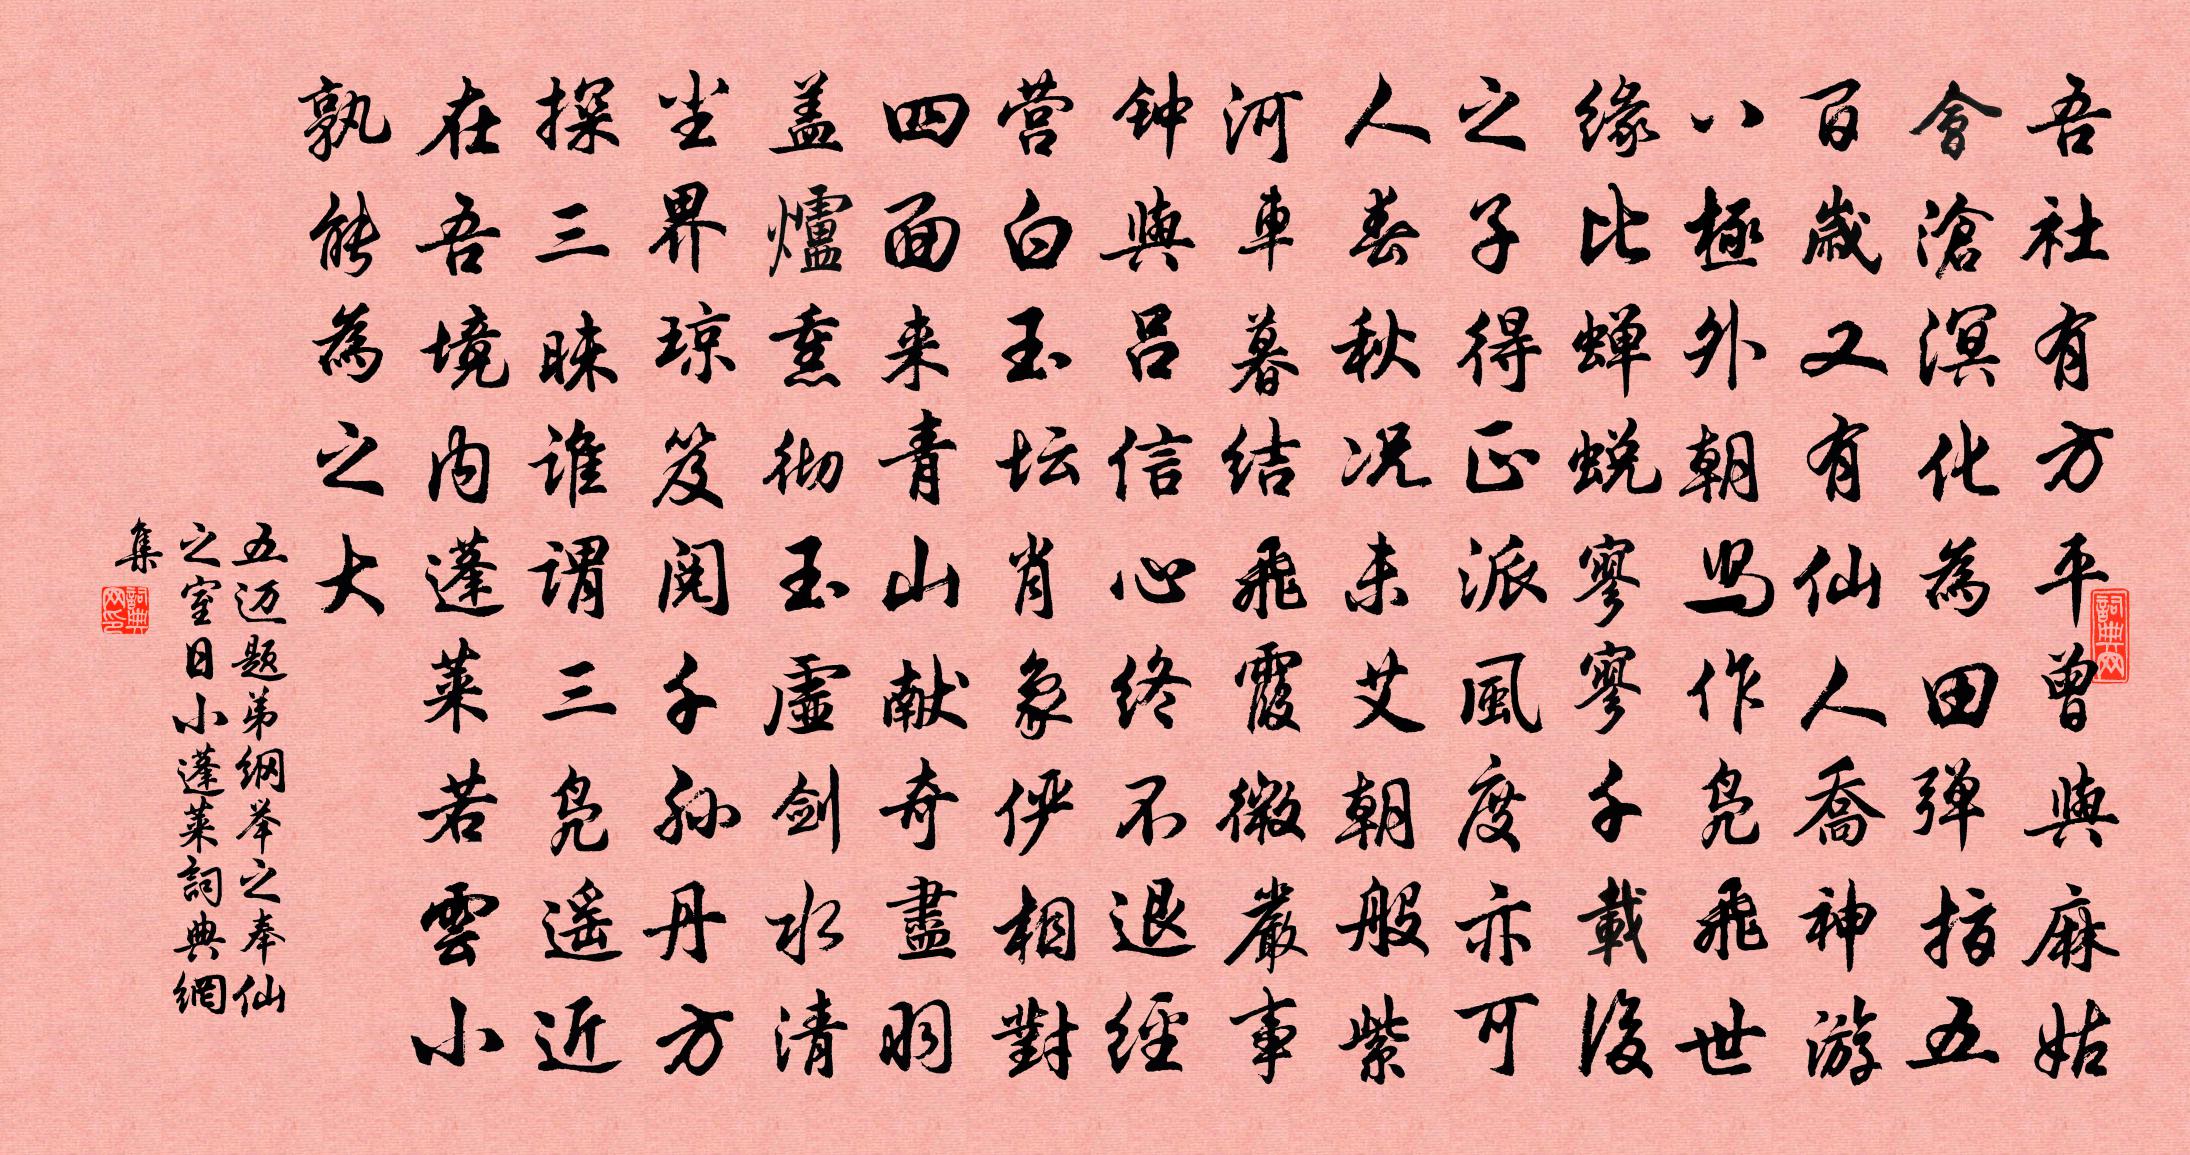 吾社有方平曾與麻姑
會滄溟化為田弹指五
百歲又有仙人喬神游
八極外朝為作凫飛世
缘比蝉蜕寥寥千載後
之子得正派風度亦可
人春秋况未艾朝般紫
河車暮结飛霞微嚴事
钟與吕信心终不退經
营白玉坛肖象俨相對
四面来青山献奇盡羽
盖爐熏彻玉虚剑水清
尘界琼笈阅千孙丹方
探三昧谁謂三凫遥近
在吾境内蓬莱若雲小
孰能為之大
五迈题弟綱举之奉仙
之室日小蓬莱詞典網
集
詞典网
詞典网印